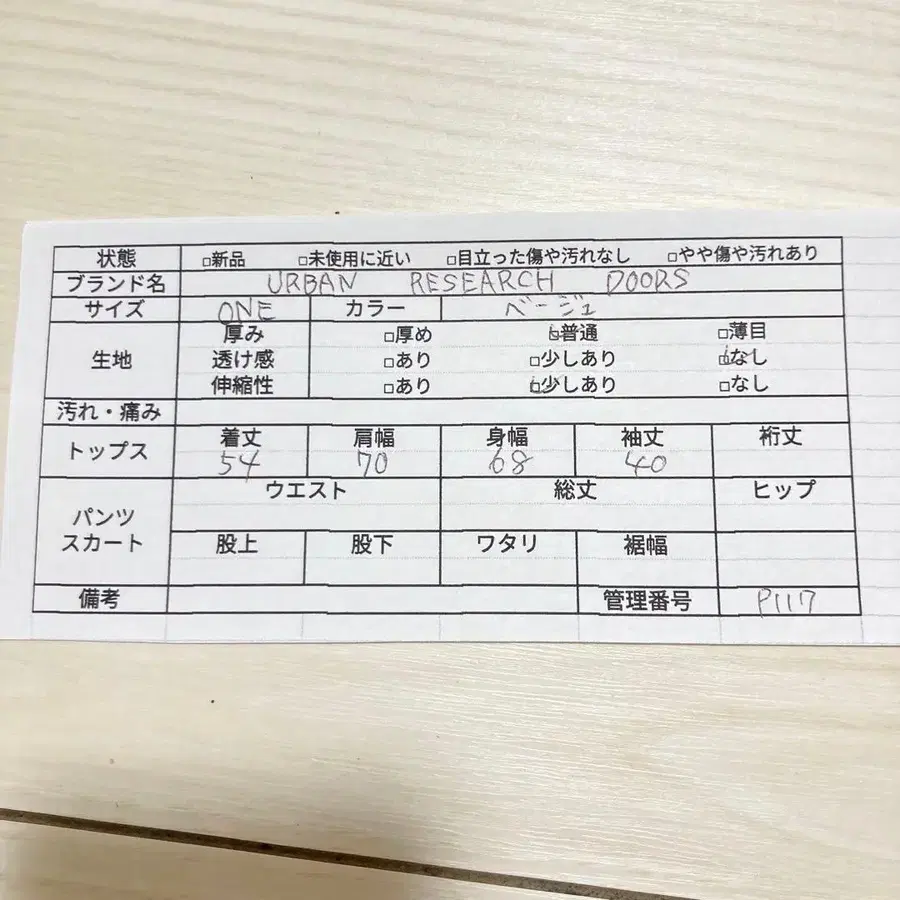 状態 □新品 □未使用に近い □目立った傷や汚れなし □やや傷や汚れあり
ブランド名 URBAN RESEARCH DOORS
サイズ ONE カラー ベージュ
生地 厚み □厚め ☑普通 □薄目
透け感 □あり □少しあり ☑なし
伸縮性 □あり ☑少しあり □なし
汚れ・痛み
トップス 着丈 肩幅 身幅 袖丈 裄丈
54 70 68 40
パンツ スカート ウエスト 総丈 ヒップ
股上 股下 ワタリ 裾幅
備考 管理番号 P117